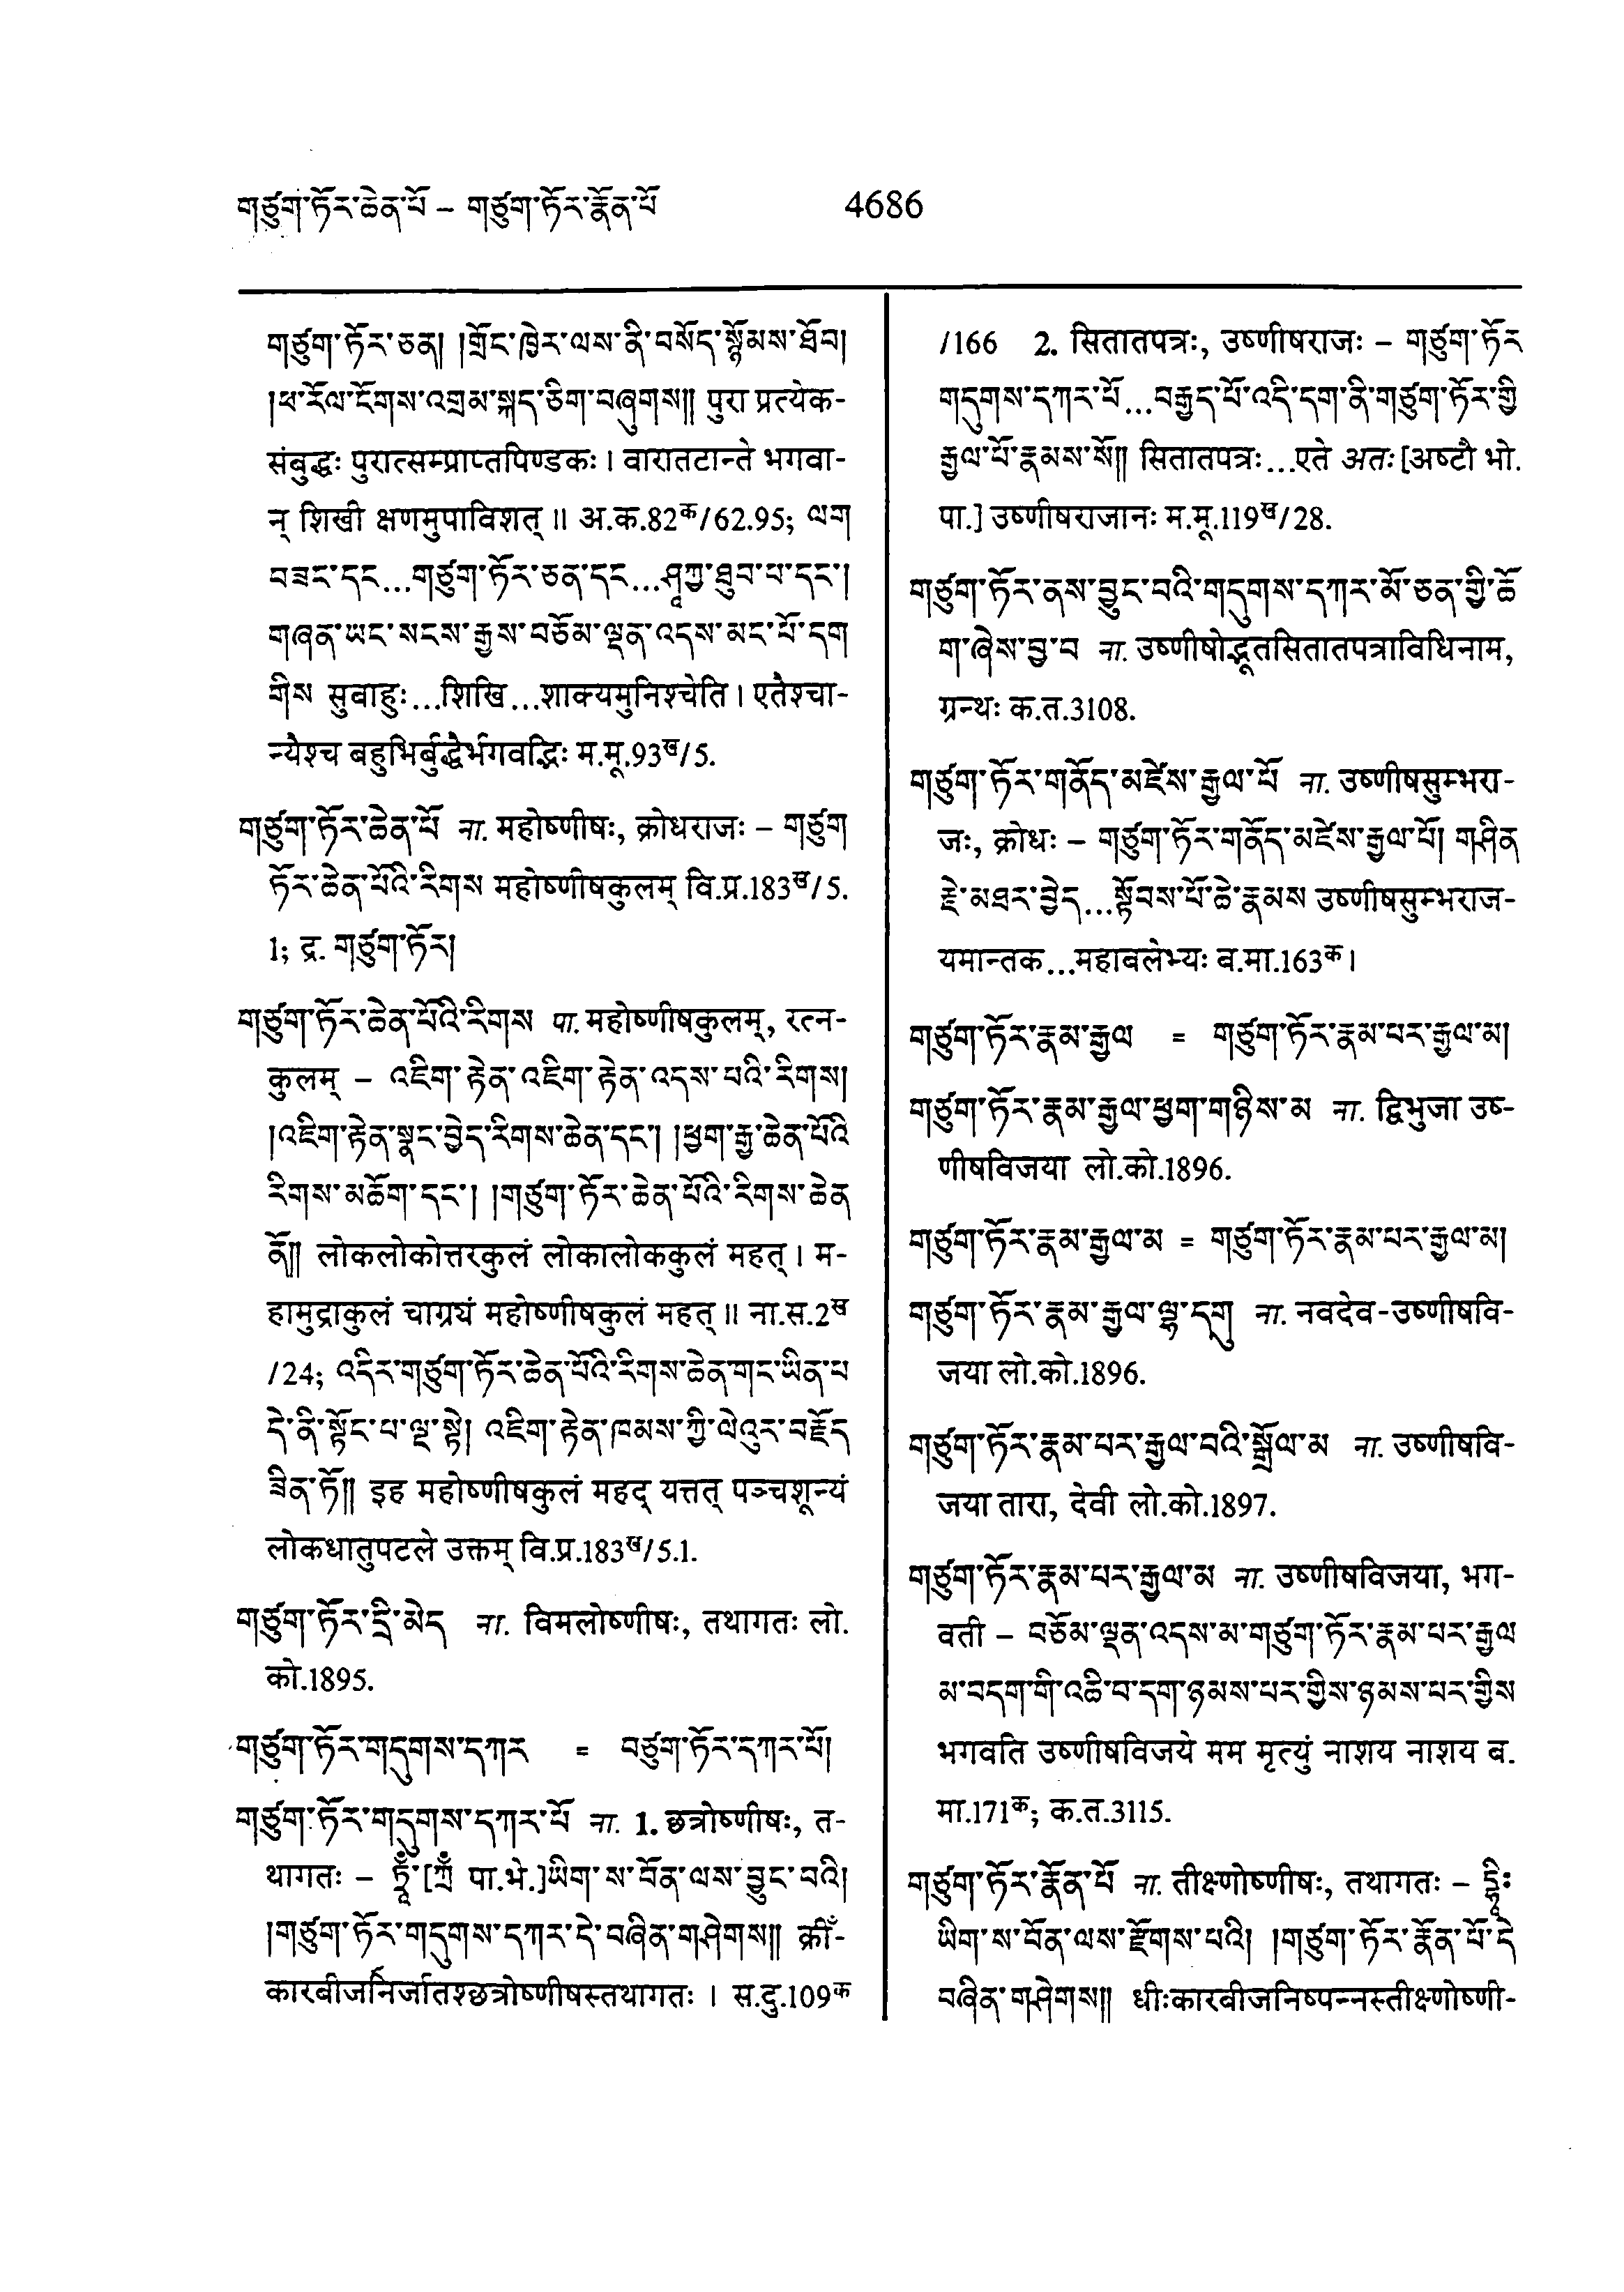 གཙུག་ཏོར་ཆེན་པོ – གཙུག་ཏོར་རྣོན་པོ
4686
གཙུག་ཏོར་ཅན། །གྲོང་ཁྱེར་ལས་ནི་བསོད་སྙོམས་ཐོབ།
།ཕ་རོལ་ངོགས་འགྲམ་སྐད་ཅིག་བཞུགས།། पुरा प्रत्येक-
संबुद्धः पुरात्सम्प्राप्तपिण्डकः । वारातटान्ते भगवा-
न् शिखी क्षणमुपाविशत् ॥ अ.क.82क/62.95; ལག
བཟང་དང...གཙུག་ཏོར་ཅན་དང...ཤཱཀྱ་ཐུབ་པ་དང་།
གཞན་ཡང་སངས་རྒྱས་བཅོམ་ལྡན་འདས་མང་པོ་དག
གིས सुवाहुः...शिखि...शाक्यमुनिश्चेति । एतैश्चा-
न्यैश्च बहुभिर्बुद्धैर्भगवद्भिः म.मू.93ख/5.
གཙུག་ཏོར་ཆེན་པོ ना. महोष्णीषः, क्रोधराजः – གཙུག
ཏོར་ཆེན་པོའི་རིགས महोष्णीषकुलम् वि.प्र.183ख/5.
1; द्र. གཙུག་ཏོར།
གཙུག་ཏོར་ཆེན་པོའི་རིགས पा. महोष्णीषकुलम्, रत्न-
कुलम् – འཇིག་རྟེན་འཇིག་རྟེན་འདས་པའི་རིགས།
།འཇིག་རྟེན་སྣང་བྱེད་རིགས་ཆེན་དང་། །ཕྱག་རྒྱ་ཆེན་པོའི
རིགས་མཆོག་དང་། །གཙུག་ཏོར་ཆེན་པོའི་རིགས་ཆེན
ནོ།། लोकलोकोत्तरकुलं लोकालोककुलं महत् । म-
हामुद्राकुलं चाग्रयं महोष्णीषकुलं महत् ॥ ना.स.2ख
/24; འདིར་གཙུག་ཏོར་ཆེན་པོའི་རིགས་ཆེན་གང་ཡིན་པ
དེ་ནི་སྟོང་པ་ལྔ་སྟེ། འཇིག་རྟེན་ཁམས་ཀྱི་ལེའུར་བརྗོད
ཟིན་ཏོ།། इह महोष्णीषकुलं महद् यत्तत् पञ्चशून्यं
लोकधातुपटले उक्तम् वि.प्र.183ख/5.1.
གཙུག་ཏོར་དྲི་མེད ना. विमलोष्णीषः, तथागतः लो.
को.1895.
གཙུག་ཏོར་གདུགས་དཀར = བཙུག་ཏོར་དཀར་པོ།
གཙུག་ཏོར་གདུགས་དཀར་པོ ना. 1. छत्रोष्णीषः, त-
थागतः – [ पा.भे.]ཡིག་ས་བོན་ལས་བྱུང་བའི།
།གཙུག་ཏོར་གདུགས་དཀར་དེ་བཞིན་གཤེགས།། क्रीँ-
कारबीजनिर्जातश्छत्रोष्णीषस्तथागतः । स.दु.109क
/166 2. सितातपत्रः, उष्णीषराजः – གཙུག་ཏོར
གདུགས་དཀར་པོ...བརྒྱད་པོ་འདི་དག་ནི་གཙུག་ཏོར་གྱི
རྒྱལ་པོ་རྣམས་སོ།། सितातपत्रः...एते अतः [अष्टौ भो.
पा.] उष्णीषराजानः म.मू.119ख/28.
གཙུག་ཏོར་ནས་བྱུང་བའི་གདུགས་དཀར་མོ་ཅན་གྱི་ཆོ
ག་ཞེས་བྱ་བ ना. उष्णीषोद्भूतसितातपत्राविधिनाम,
ग्रन्थः क.त.3108.
གཙུག་ཏོར་གནོད་མཛེས་རྒྱལ་པོ ना. उष्णीषसुम्भरा-
जः, क्रोधः – གཙུག་ཏོར་གནོད་མཛེས་རྒྱལ་པོ། གཤིན
རྗེ་མཐར་བྱེད...སྟོབས་པོ་ཆེ་རྣམས उष्णीषसुम्भराज-
यमान्तक...महाबलेभ्यः ब.मा.163क ।
གཙུག་ཏོར་རྣམ་རྒྱལ = གཙུག་ཏོར་རྣམ་པར་རྒྱལ་མ།
གཙུག་ཏོར་རྣམ་རྒྱལ་ཕྱག་གཉིས་མ ना. द्विभुजा उष्-
णीषविजया लो.को.1896.
གཙུག་ཏོར་རྣམ་རྒྱལ་མ = གཙུག་ཏོར་རྣམ་པར་རྒྱལ་མ།
གཙུག་ཏོར་རྣམ་རྒྱལ་ལྷ་དགུ ना. नवदेव-उष्णीषवि-
जया लो.को.1896.
གཙུག་ཏོར་རྣམ་པར་རྒྱལ་བའི་སྒྲོལ་མ ना. उष्णीषवि-
जया तारा, देवी लो.को.1897.
གཙུག་ཏོར་རྣམ་པར་རྒྱལ་མ ना. उष्णीषविजया, भग-
वती – བཅོམ་ལྡན་འདས་མ་གཙུག་ཏོར་རྣམ་པར་རྒྱལ
མ་བདག་གི་འཆི་བ་དག་ཉམས་པར་གྱིས་ཉམས་པར་གྱིས
भगवति उष्णीषविजये मम मृत्युं नाशय नाशय ब.
मा.171क; क.त.3115.
གཙུག་ཏོར་རྣོན་པོ ना. तीक्ष्णोष्णीषः, तथागतः – དྷཱིཿ
ཡིག་ས་བོན་ལས་རྫོགས་པའི། །གཙུག་ཏོར་རྣོན་པོ་དེ
བཞིན་གཤེགས།། धीःकारबीजनिष्पन्नस्तीक्ष्णोष्णी-